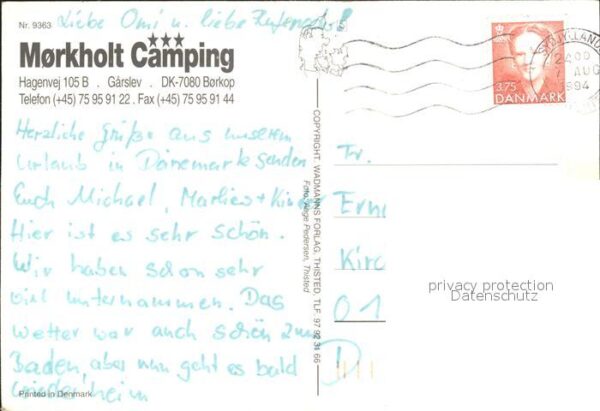 Nr. 9363
Liebe Omi u. liebe
Mørkholt Camping
Hagenvej 105 B . Gårslev . DK-7080 Børkop
Telefon (+45) 75 95 91 22 . Fax (+45) 75 95 91 44
Herzliche Grüße aus unserem
Urlaub in Dänemark senden
Euch Michael, Marlies + Kinder
Hier ist es sehr schön.
Wir haben schon sehr
viel unternommen. Das
Wetter war auch schön zum
Baden, aber nun geht es bald
wieder heim
Printed in Denmark
COPYRIGHT: WADMANNS FORLAG, THISTED, TLF. 97 92 31 66
Foto: Aage Pedersen, Thisted
AUG
1994
3.75
DANMARK
Fr.
Ern
Kirc
01
D
privacy protection
Datenschutz